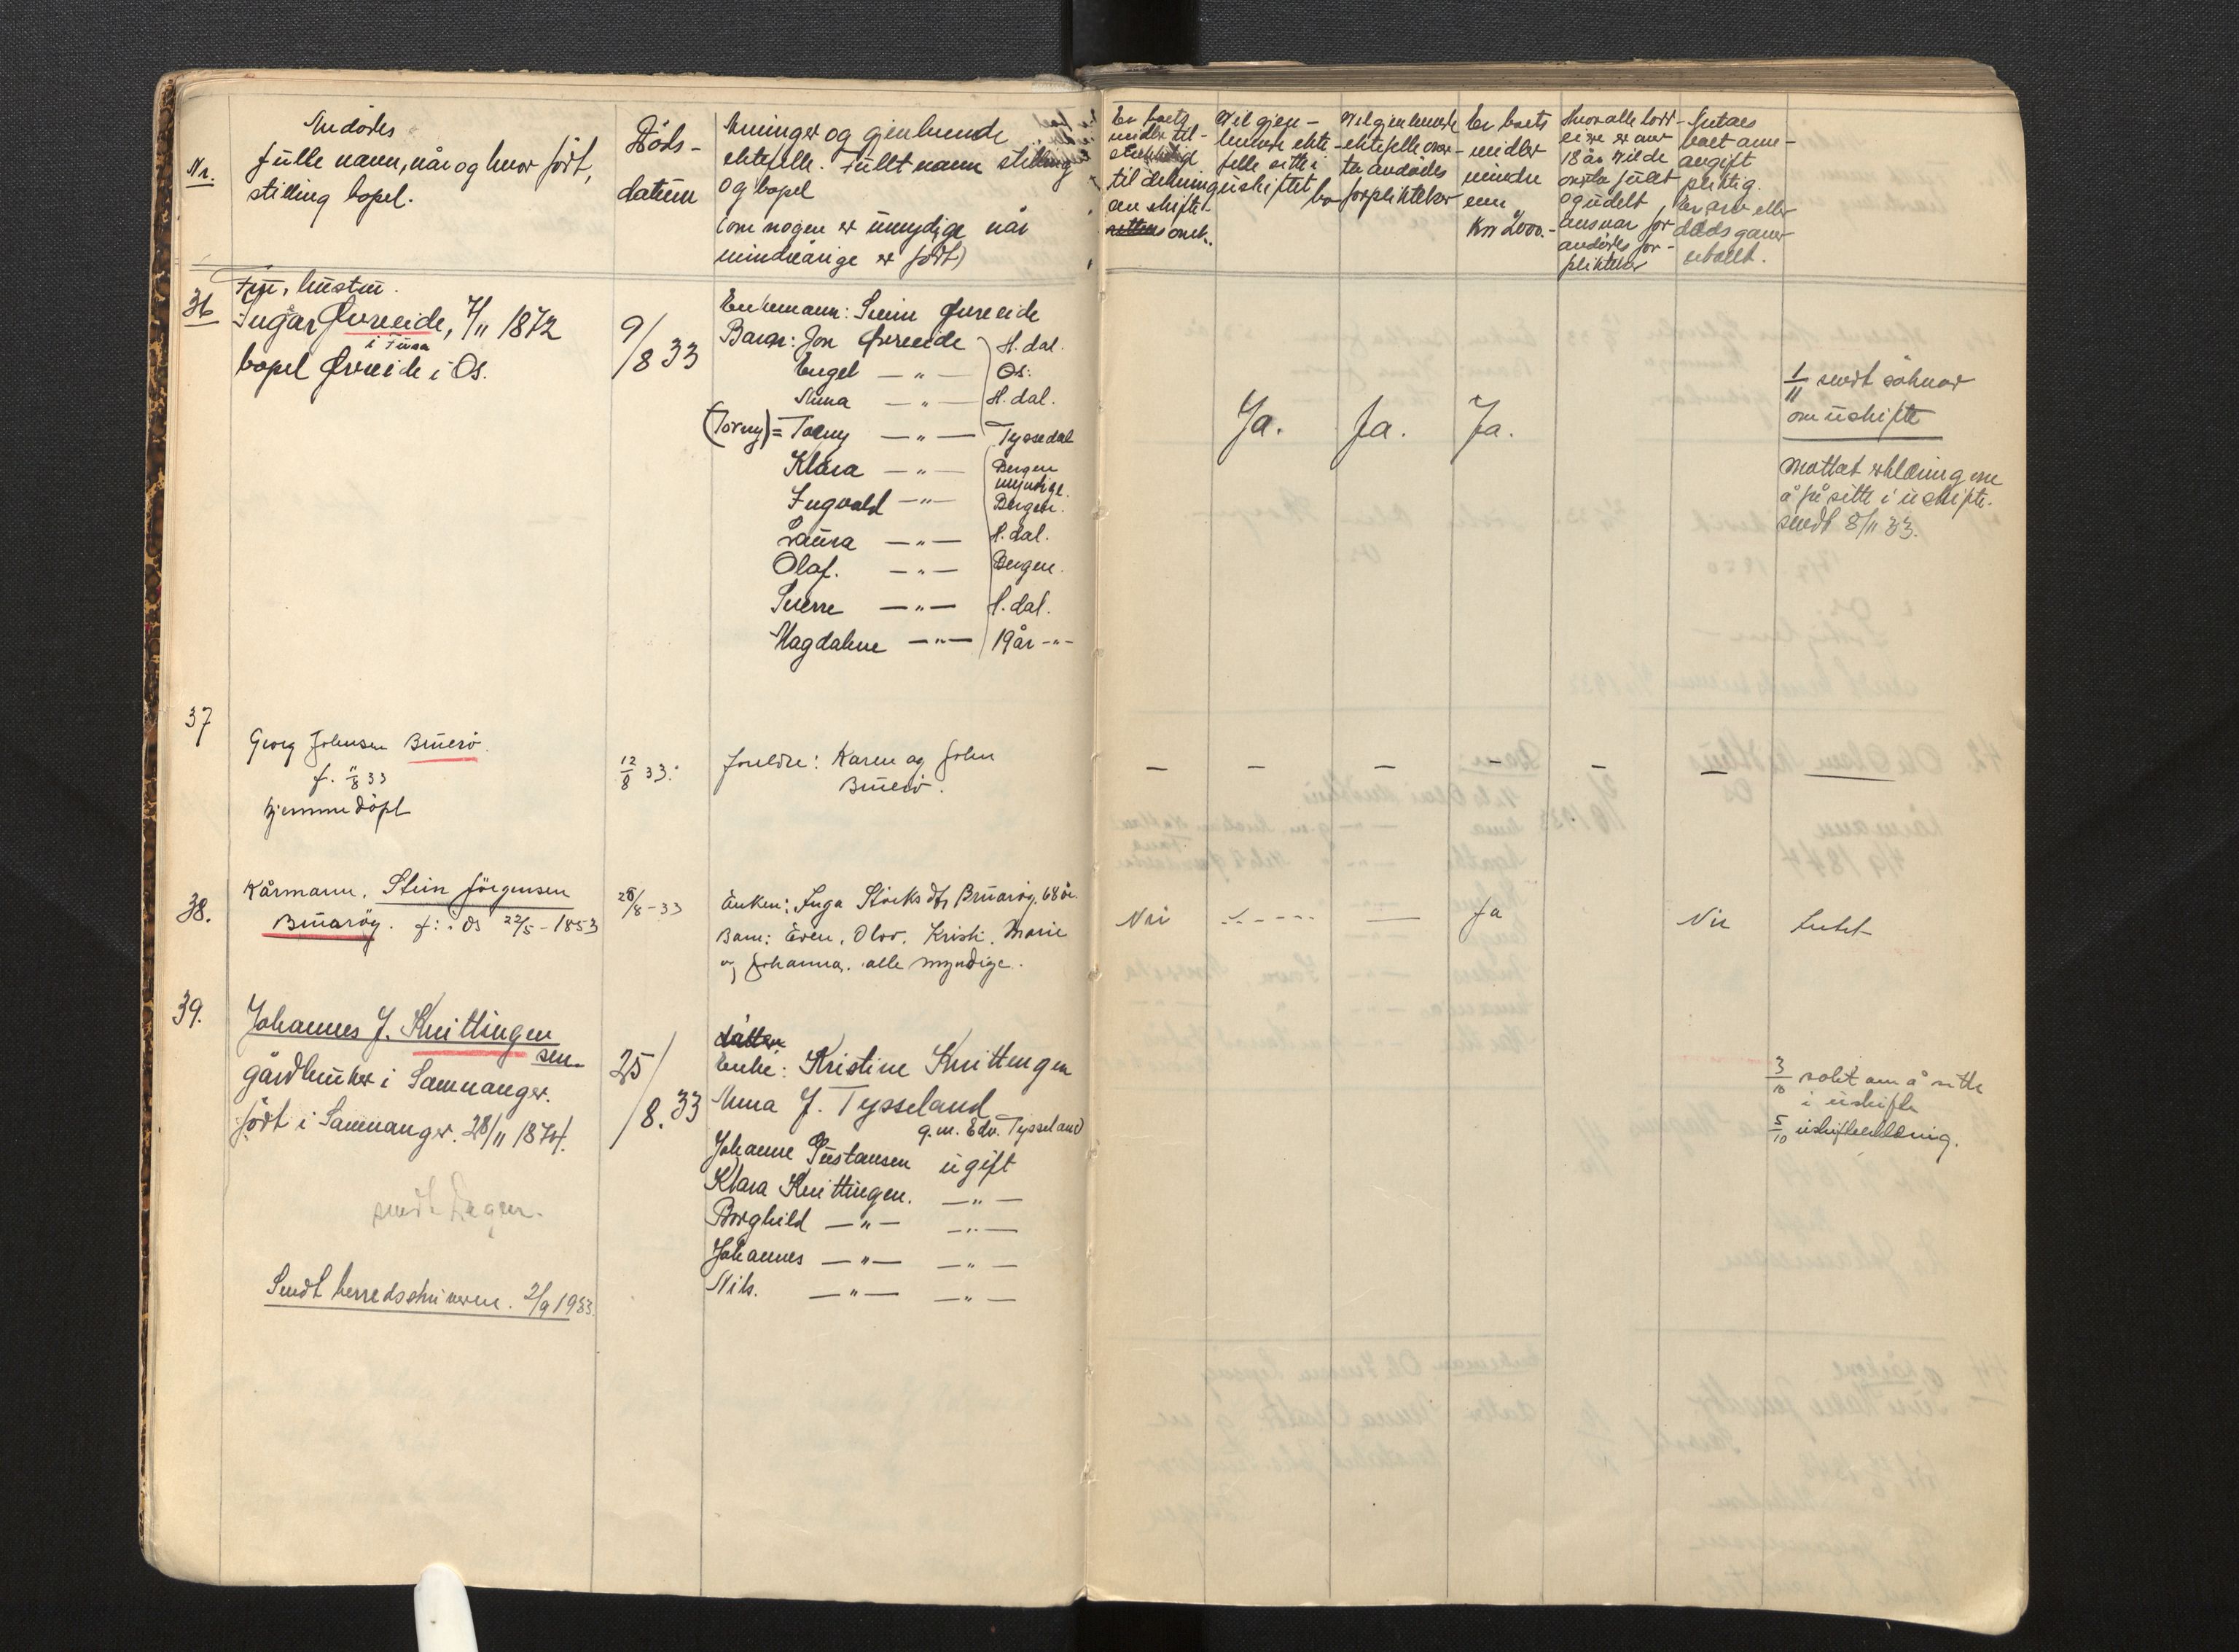 Nr.
Avdødes
fulle navn, når og hvor født,
stilling bopel.
Døds-
datum
Arvinger og gjenlevende
ektefelle. Fullt navn stilling
og bopel
(om nogen er umyndige når
mindreårige er født)
Er boets
midler til-
strekkelig
til dekning
av skifte-
omk.
Vil gjen-
levende ekte-
felle sitte i
uskiftet bo
Vil gjenlevende
ektefelle over-
ta avdødes
forpliktelser
Er boets
midler
mindre
enn
Kr 2000.-
Hvor alle lodd-
eiere er over
18 år vil de
overta fullt
og udelt
ansvar for
avdødes for-
pliktelser
Antaes
boet arve-
avgift
pliktig.
Er arv eller
dødsgaver
utdelt.
36
Fru, hustru.
Ingar Øvreeide, 7/11 1872
i Fusa
bopel Øvreeide i Os.
9/8 33
Enkemann: Svein Øvreeide
Barn: Jon Øvreeide H.dal.
Engel — " — Os.
Anna — " — H.dal.
(Torny) = Torny — " — Tyssedal
Klara — " — Bergen
myndige.
Ingvald — " — Bergen.
Laura — " — H.dal.
Olaf. — " — Bergen.
Sverre — " — H.dal.
Magdalene — " — 19 år — " —
Ja. Ja. Ja.
1/11 sendt søknad
om uskifte
Mottat erklæring om
å få sitte i uskifte.
sendt 8/11 33.
37
Georg Johnsen Bruarö.
f. 11/8 33
hjemmedöpt
12/8 33.
Foreldre: Karen og John
Bruarö.
— — — — — — —
38.
Kårmann. Stein Jörgensen
Bruaröy. f: i Os 22/5 - 1853
28/8 - 33
Enken: Inga Størksdtr Bruaröy, 68 år.
Barn: Even, Olav, Kristi, Marie
og Johanna. alle myndige.
Nei — — Ja Nei Intet
39.
Johannes J. Knittingen
sen.
gårdbruker i Samnanger.
født i Samnanger. 28/11 1874.
sendt Legen.
Sendt herredsskriveren. 2/9 1933.
25/8. 33
Enke: Kristine Knittingen
Anna J. Tysseland
g.m. Edv. Tysseland
Johanne Gustavsen ugift
Klara Knittingen. — " —
Borghild — " — — " —
Johannes — " — — " —
Nils. — " — — " —
3/10 søkt om å sitte
i uskifte
5/10 uskifteerklæring.